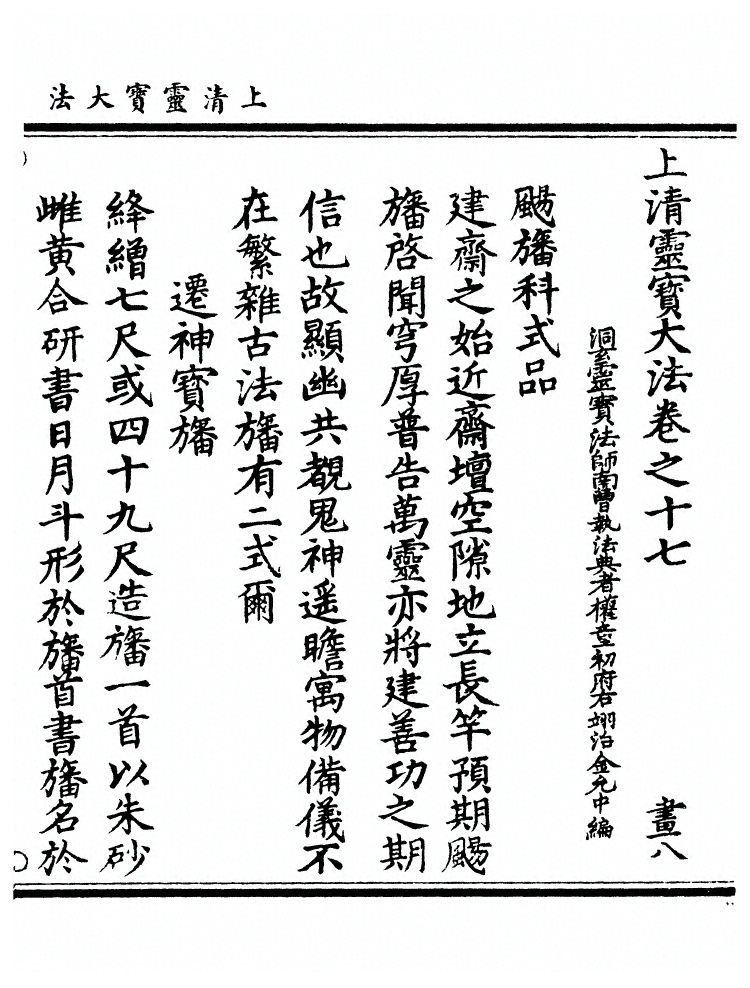 上清靈寶大法
上清靈寶大法卷之十七 畫八
洞玄靈寶法師南曹執法典者權童初府右翊治金允中編
颺旛科式品
建齋之始近齋壇空隙地立長竿預期颺
旛啓聞穹厚普告萬靈亦將建善功之期
信也故顯幽共覩鬼神遥瞻寓物備儀不
在繁雜古法旛有二式爾
遷神寶旛
絳繒七尺或四十九尺造旛一首以朱砂
雌黄合研書日月斗形於旛首書旛名於